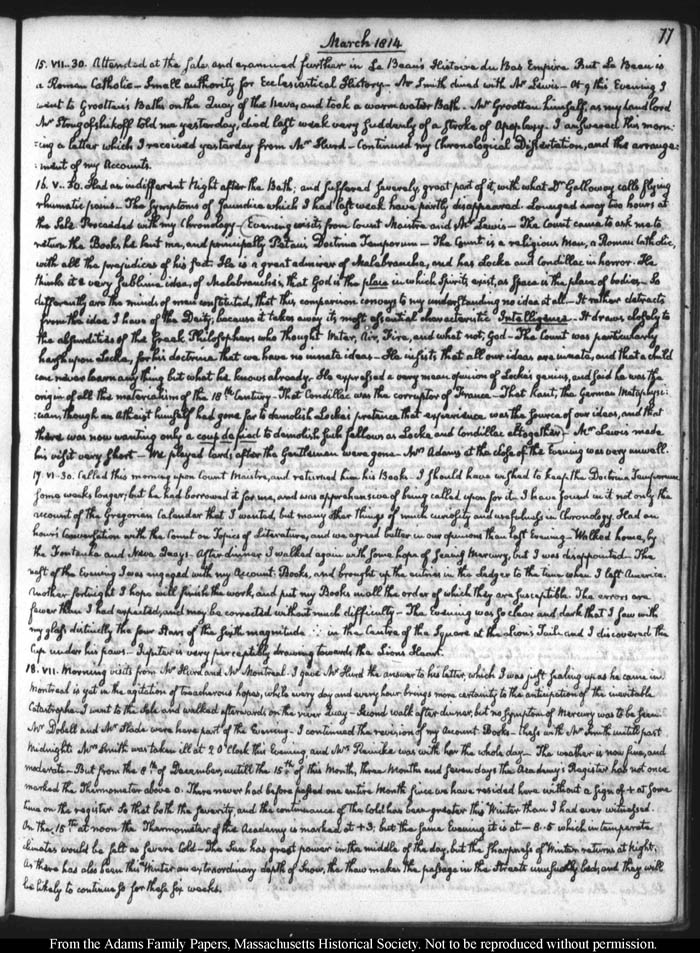 77
March 1814
15. VII..30. Attended at the Sale and examined further in Le Beau's Histoire du Bas Empire But Le Beau is
a Roman Catholic — Small authority for Ecclesiastical History — Mr Smith dined with Mr Lewis — At 9 this Evening I
went to Grootten's Baths on the Quay of the Neva, and took a warm water Bath. Mr Grootten himself, as my landlord
Mr Strogofshikoff told me yesterday, died last week very suddenly of a stroke of Apoplexy. I answered this morn-
:ing a letter which I received yesterday from Mr Hurd — Continued my Chronological Dissertation, and the arrange:
:ment of my Accounts.
16. V..30. Had an indifferent Night after the Bath; and suffered severely great part of it, with what Dr Galloway calls flying
rhumatic pains — The Symptoms of Jaundice which I had last week have partly disappeared. Lounged away two hours at
the Sale. Proceeded with my Chronology — Evening visits from Count Maistre and Mr Lewis — The Count came to ask me to
return the Books he lent me, and principally Petavii Doctrina Temporum — The Count is a religious Man, a Roman Catholic,
with all the prejudices of his Sect. He is a great admirer of Malebranche, and has Locke and Condillac in horror. He
thinks it a very sublime idea, of Malebranche's, that God is the place in which Spirits exist, as Space is the place of bodies — So
differently are the minds of men constituted, that this comparison conveys to my understanding no idea at all — It rather detracts
from the idea I have of the Deity, because it takes away its most essential characteristic Intelligence — It draws closely to
the absurdities of the Greek Philosophers who thought Water, Air, Fire, and what not, God — The Count was particularly
harsh upon Locke, for his doctrine that we have no innate ideas — He insists that all our ideas are innate, and that a child
can never learn any thing but what he knows already. He expressed a very mean opinion of Locke's genius, and said he was the
origin of all the materialism of the 18th Century — That Condillac was the corruptor of France — That Kant, the German Metaphysi:
:cian, though an Atheist himself had gone far to demolish Locke's pretence that experience was the source of our ideas, and that
there was now wanting only a coup de pied to demolish such fellows as Locke and Condillac altogether — Mr Lewis made
his visit very short — We played cards after the Gentlemen were gone — Mrs Adams at the close of the Evening was very unwell.
17. VI..30. Called this morning upon Count Maistre, and returned him his Books. I should have wished to keep the Doctrina Temporum
some weeks longer; but he had borrowed it for me, and was apprehensive of being called upon for it. I have found in it not only the
account of the Gregorian Calendar that I wanted, but many other things of much curiosity and usefulness in Chronology. Had an
hour's Conversation with the Count on Topics of Literature, and we agreed better in our opinions than last Evening — Walked home, by
the Fontanka and Neva Quays. After dinner I walked again with some hope of seeing Mercury, but I was disappointed — The
rest of the Evening I was engaged with my Account Books, and brought up the entries in the Ledger to the time when I left America.
Another fortnight I hope will finish the work, and put my Books in all the order of which they are susceptible. The errors are
fewer than I had expected, and may be corrected without much difficulty — The Evening was so clear and dark that I saw with
my glass distinctly the four Stars of the sixth magnitude in the Centre of the Square at the Lion's Tail — and I discovered the
Cup under his paws — Jupiter is very perceptibly drawing towards the Lion's Heart.
18. VII. Morning visits from Mr Hurd and Mr Montreal. I gave Mr Hurd the answer to his letter, which I was just sealing up as he came in
Montreal is yet in the agitation of treacherous hopes, while every day and every hour brings more certainty to the anticipation of the inevitable
Catastrophe. I went to the Sale and walked afterwards on the river Quay — Second walk after dinner, but no symptom of Mercury was to be seen.
Mr Dobell and Mr Slade were here part of the Evening. I continued the revision of my Account Books — Chess with Mr Smith untill past
Midnight. Mrs Smith was taken ill at 2 O'Clock this Evening and Mrs was with her the whole day — The weather is now fine, and
moderate — But from the 8th of December, untill the 15th of this Month, three Months and seven days the Academy's Register has not once
marked the Thermometer above 0. There never had before passed one entire Month since we have resided here without a sign of + at some
time on the register. So that both the severity, and the continuance of the cold has been greater this Winter than I had ever witnessed.
On the 15th at noon the Thermometer of the Academy is marked at +3; but the same Evening it is at — 8.5 which in temperate
climates would be felt as severe Cold — The Sun has great power in the middle of the day, but the sharpness of Winter returns at Night.
As there has also been this Winter an extraordinary depth of Snow, the thaw makes the passage in the Streets unusually bad, and they will
be likely to continue so for these six weeks.
From the Adams Family Papers, Massachusetts Historical Society. Not to be reproduced without permission.